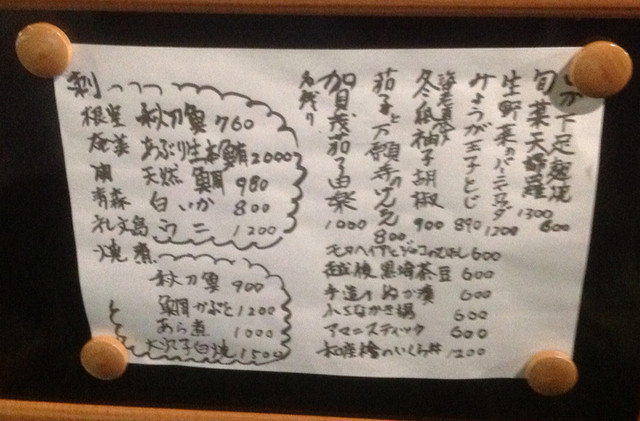 いか下足麹焼 600
旬菜天婦羅 1300
生野菜のバーニャカウダ 1200
みょうが玉子とじ 890
冬瓜柚子胡椒 900
茄子と万願寺のげんえ 800
名残り
賀茂茄子田楽 1000
刺
根室 秋刀魚 760
奄美 あぶり生本鮪 2000
天然鯛 980
青森 白いか 800
礼文島 ウニ 1200
焼 煮
秋刀魚 900
鯛かぶと 1200
あら煮 1000
穴子白焼 1500
600
越後黒埼茶豆 600
手造りぬか漬 600
小さなかき揚 600
アマニスティック 600
いくら丼 1200